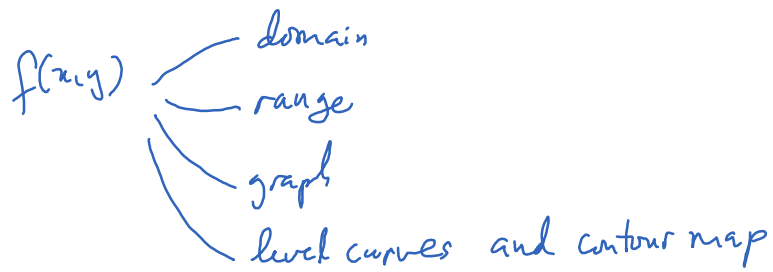 f(x,y)
domain
range
graph
level curves and contour map